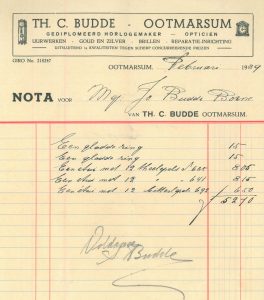 TH. C. BUDDE - OOTMARSUM
GEDIPLOMEERD HORLOGEMAKER - OPTICIEN
UURWERKEN - GOUD EN ZILVER - BRILLEN - REPARATIE-INRICHTING
UITSLUITEND 1e KWALITEITEN TEGEN SCHERP CONCURREERENDE PRIJZEN
GIRO No. 218287 OOTMARSUM, Februari 19
NOTA VOOR Mej. Jo Budde Borne
VAN TH. C. BUDDE OOTMARSUM.
Een gladde ring 15
Een gladde ring 15
Een etui met 12 8.05
Een etui met 12 " 641 8.15
Een etui met 12 6.50
52.70
Voldaan
Budde